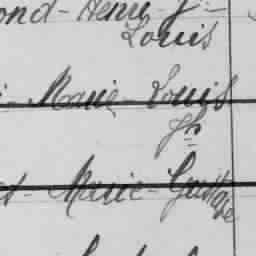 ond - Henri - Jn
Louis
- Marie - Louis
Jn
t - Marie - Gustave